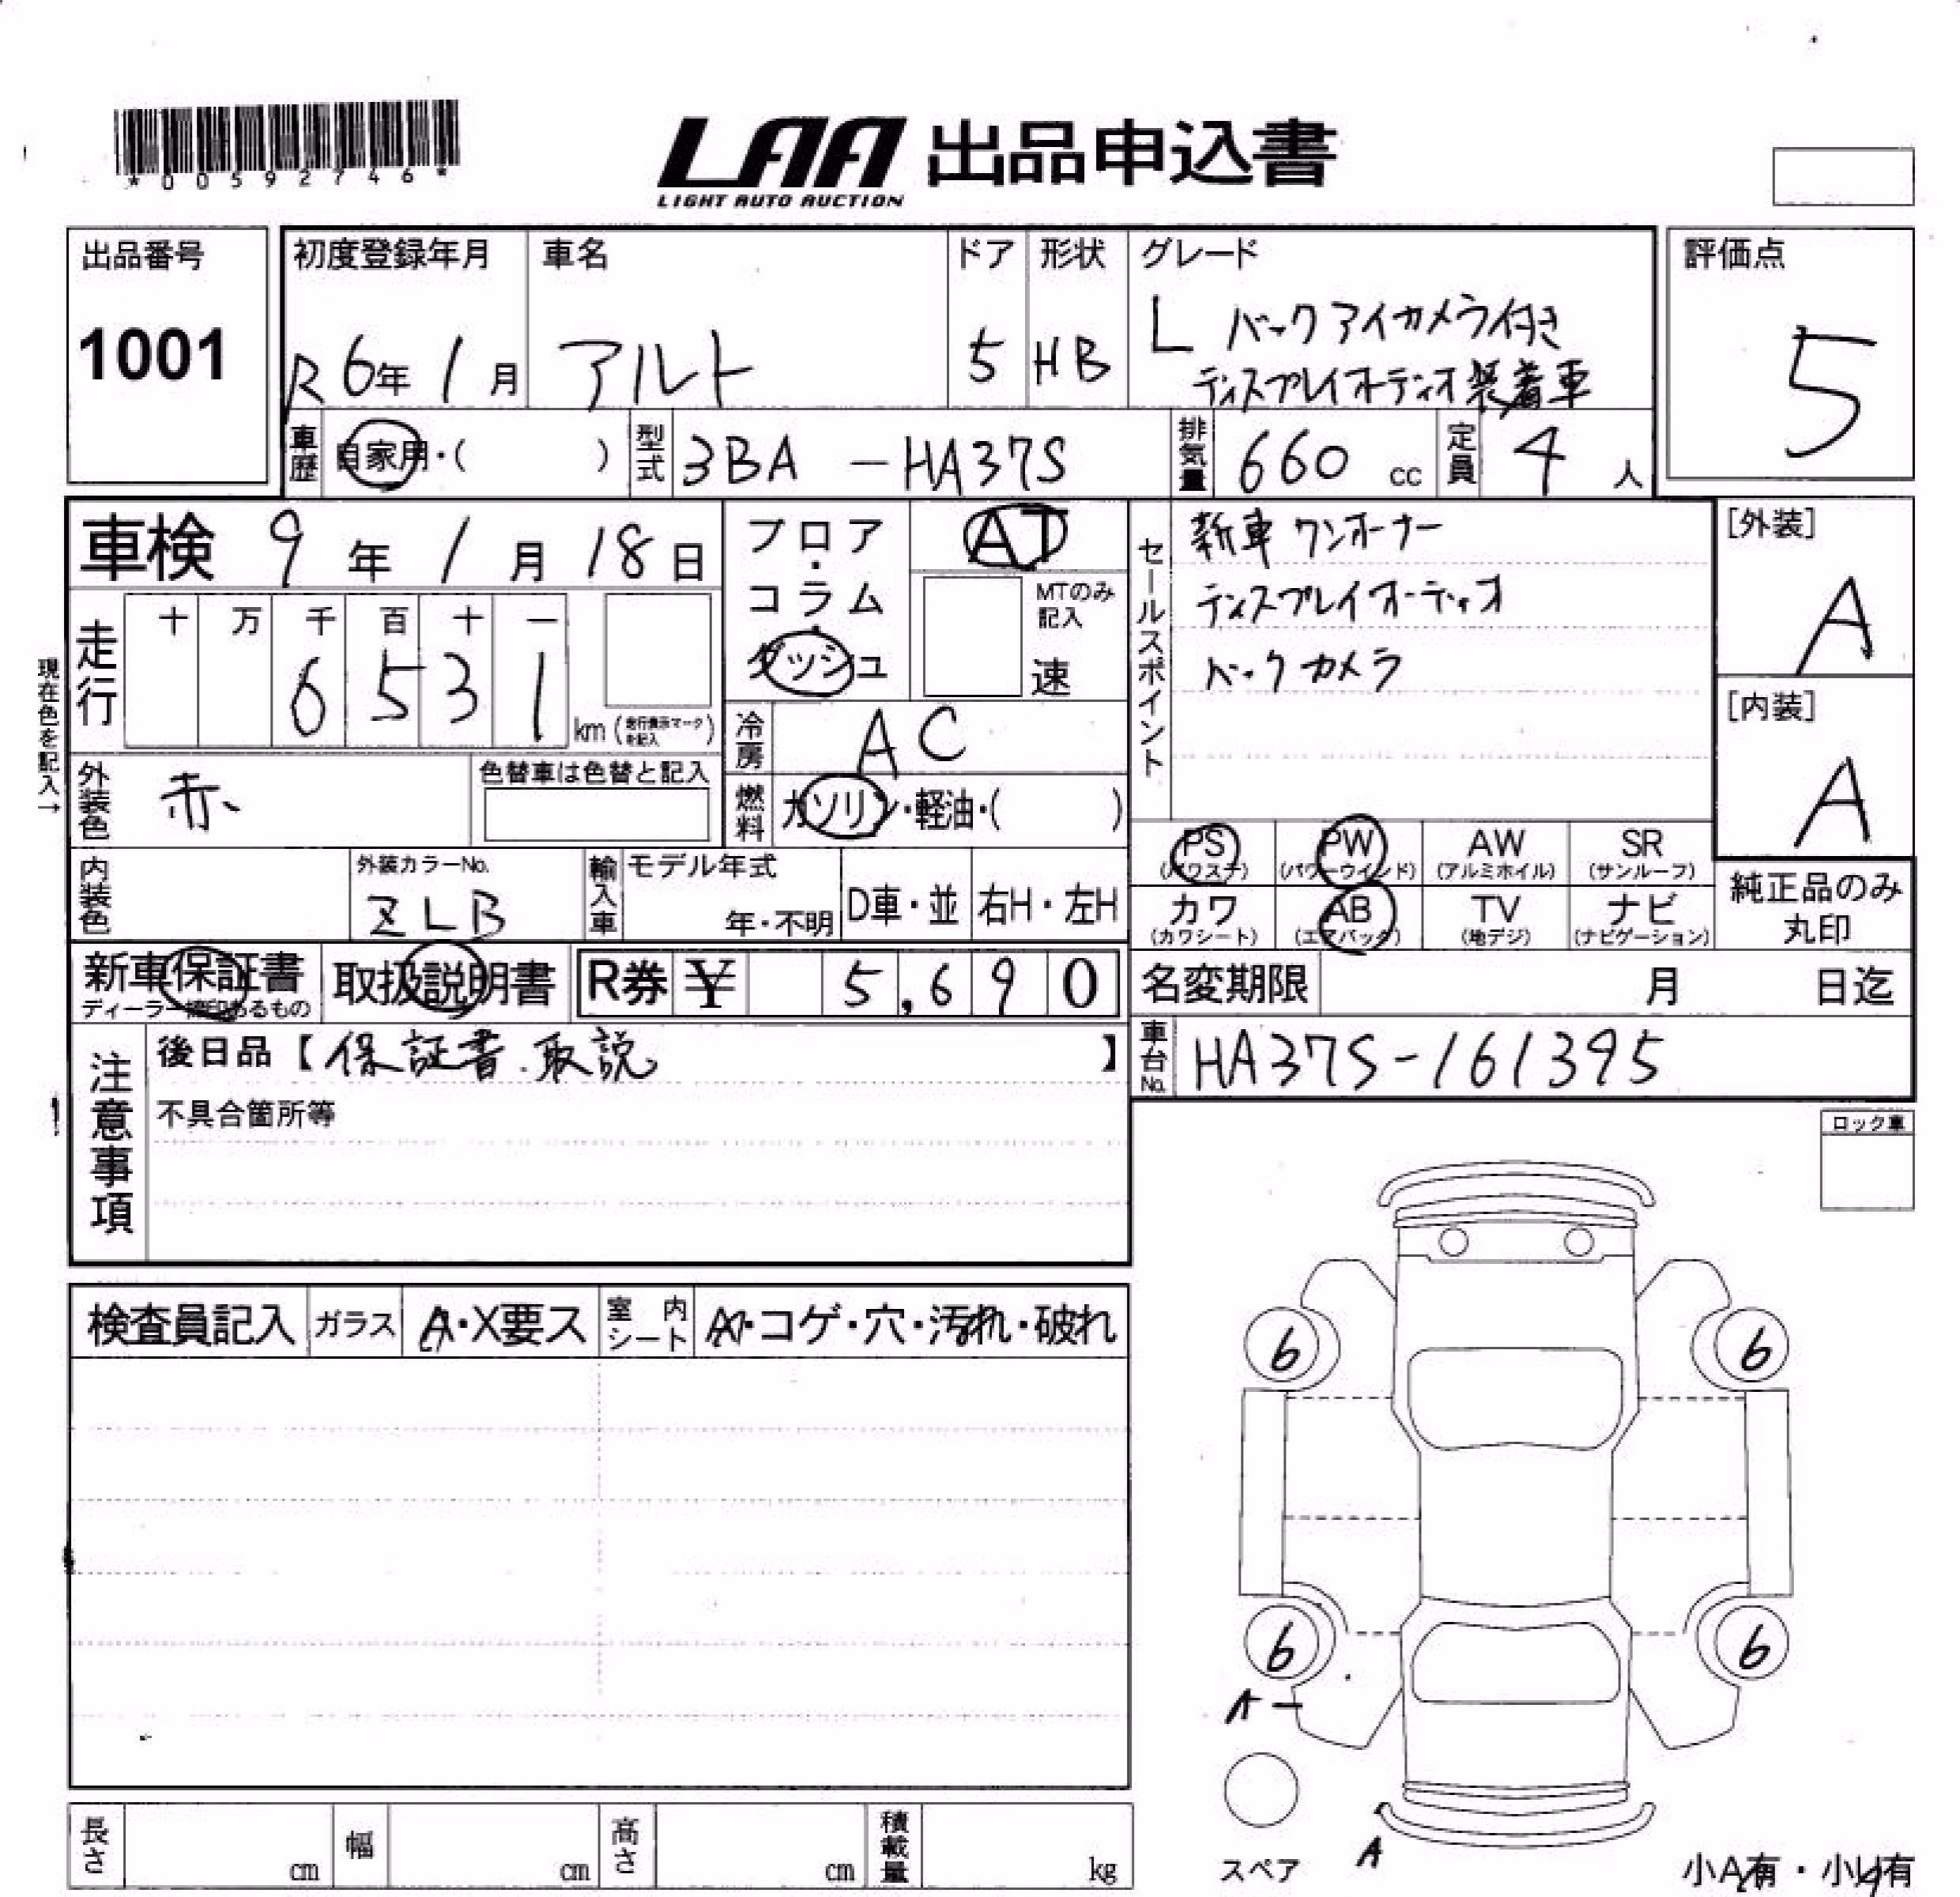 *00592746*
LAA 出品申込書
LIGHT AUTO AUCTION
出品番号
1001
初度登録年月
R 6年 1月
車名
アルト
ドア
5
形状
HB
グレード
L バックアイカメラ付き
ディスプレイオーディオ装着車
評価点
5
車歴
自家用・( )
型式
3BA -HA37S
排気量
660 cc
定員
4 人
車検 9年 1月 18日
フロア・コラム・ダッシュ
AT
MTのみ記入
速
セールスポイント
新車ワンオーナー
ディスプレイオーディオ
バックカメラ
[外装]
A
[内装]
A
現在色を記入→
走行
十 万 千 百 十 一
6 5 3 1
km(走行表示マークを記入)
冷房
AC
外装色
赤
色替車は色替と記入
燃料
ガソリン・軽油・( )
PS
(パワステ)
PW
(パワーウインド)
AW
(アルミホイル)
SR
(サンルーフ)
カワ
(カワシート)
AB
(エアバッグ)
TV
(地デジ)
ナビ
(ナビゲーション)
純正品のみ
丸印
内装色
外装カラーNo.
ZLB
輸入車
モデル年式
年・不明
D車・並
右H・左H
新車保証書
ディーラー捺印あるもの
取扱説明書
R券 ¥ 5,690
名変期限 月 日迄
車台No.
HA37S-161395
注意事項
後日品【保証書.取説 】
不具合箇所等
ロック車
検査員記入
ガラス
A・X要ス
室内シート
A・コゲ・穴・汚れ・破れ
6
6
6
6
A-
スペア
A
小A有・小U有
長さ cm
幅 cm
高さ cm
積載量 kg